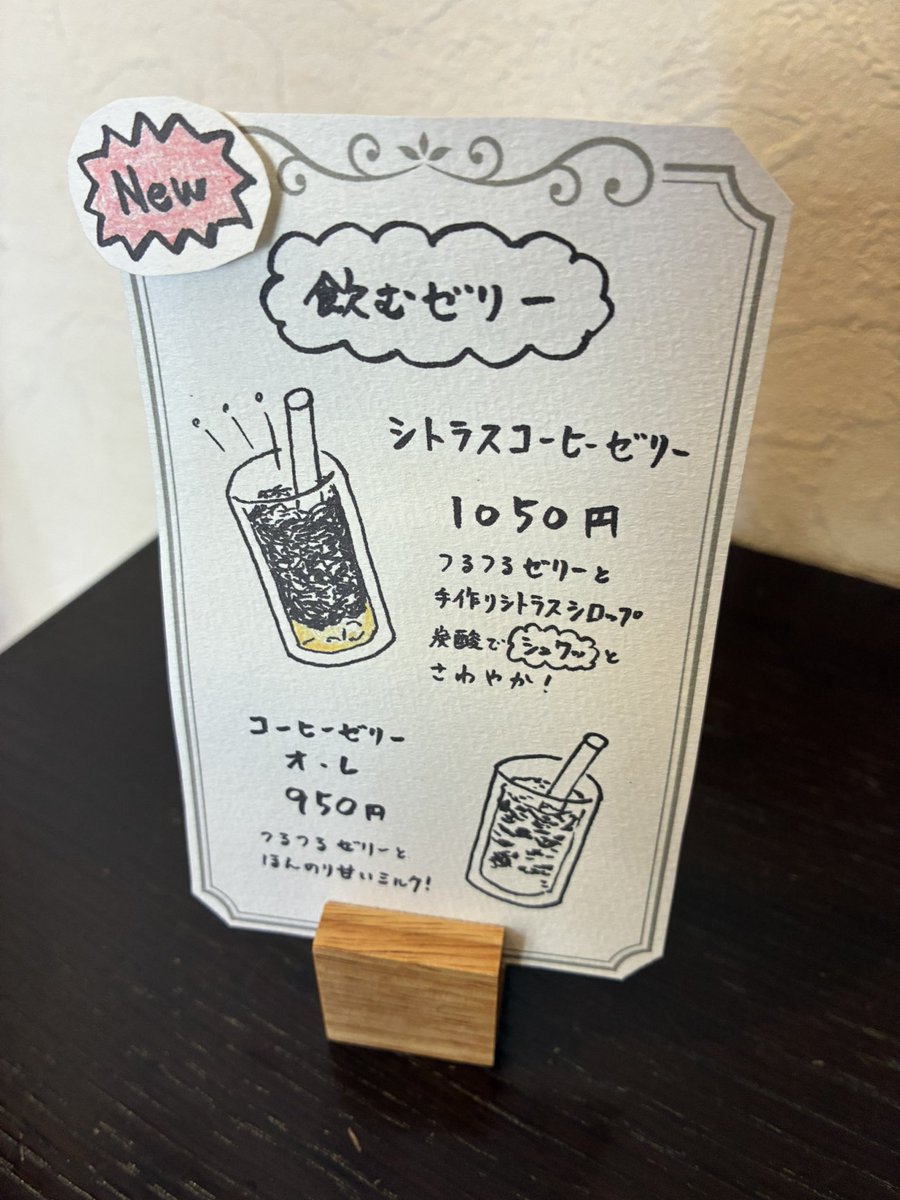 New
飲むゼリー
シトラスコーヒーゼリー
1050円
つるつるゼリーと
手作りシトラスシロップ
炭酸でシュワッと
さわやか!
コーヒーゼリー
オ・レ
950円
つるつるゼリーと
ほんのり甘いミルク!